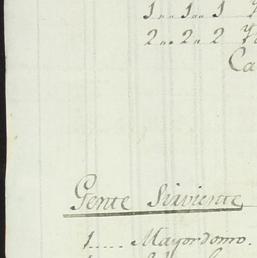 1..1..1
2..2..2
Ca
Gente Sirviente
1..... Mayordomo.